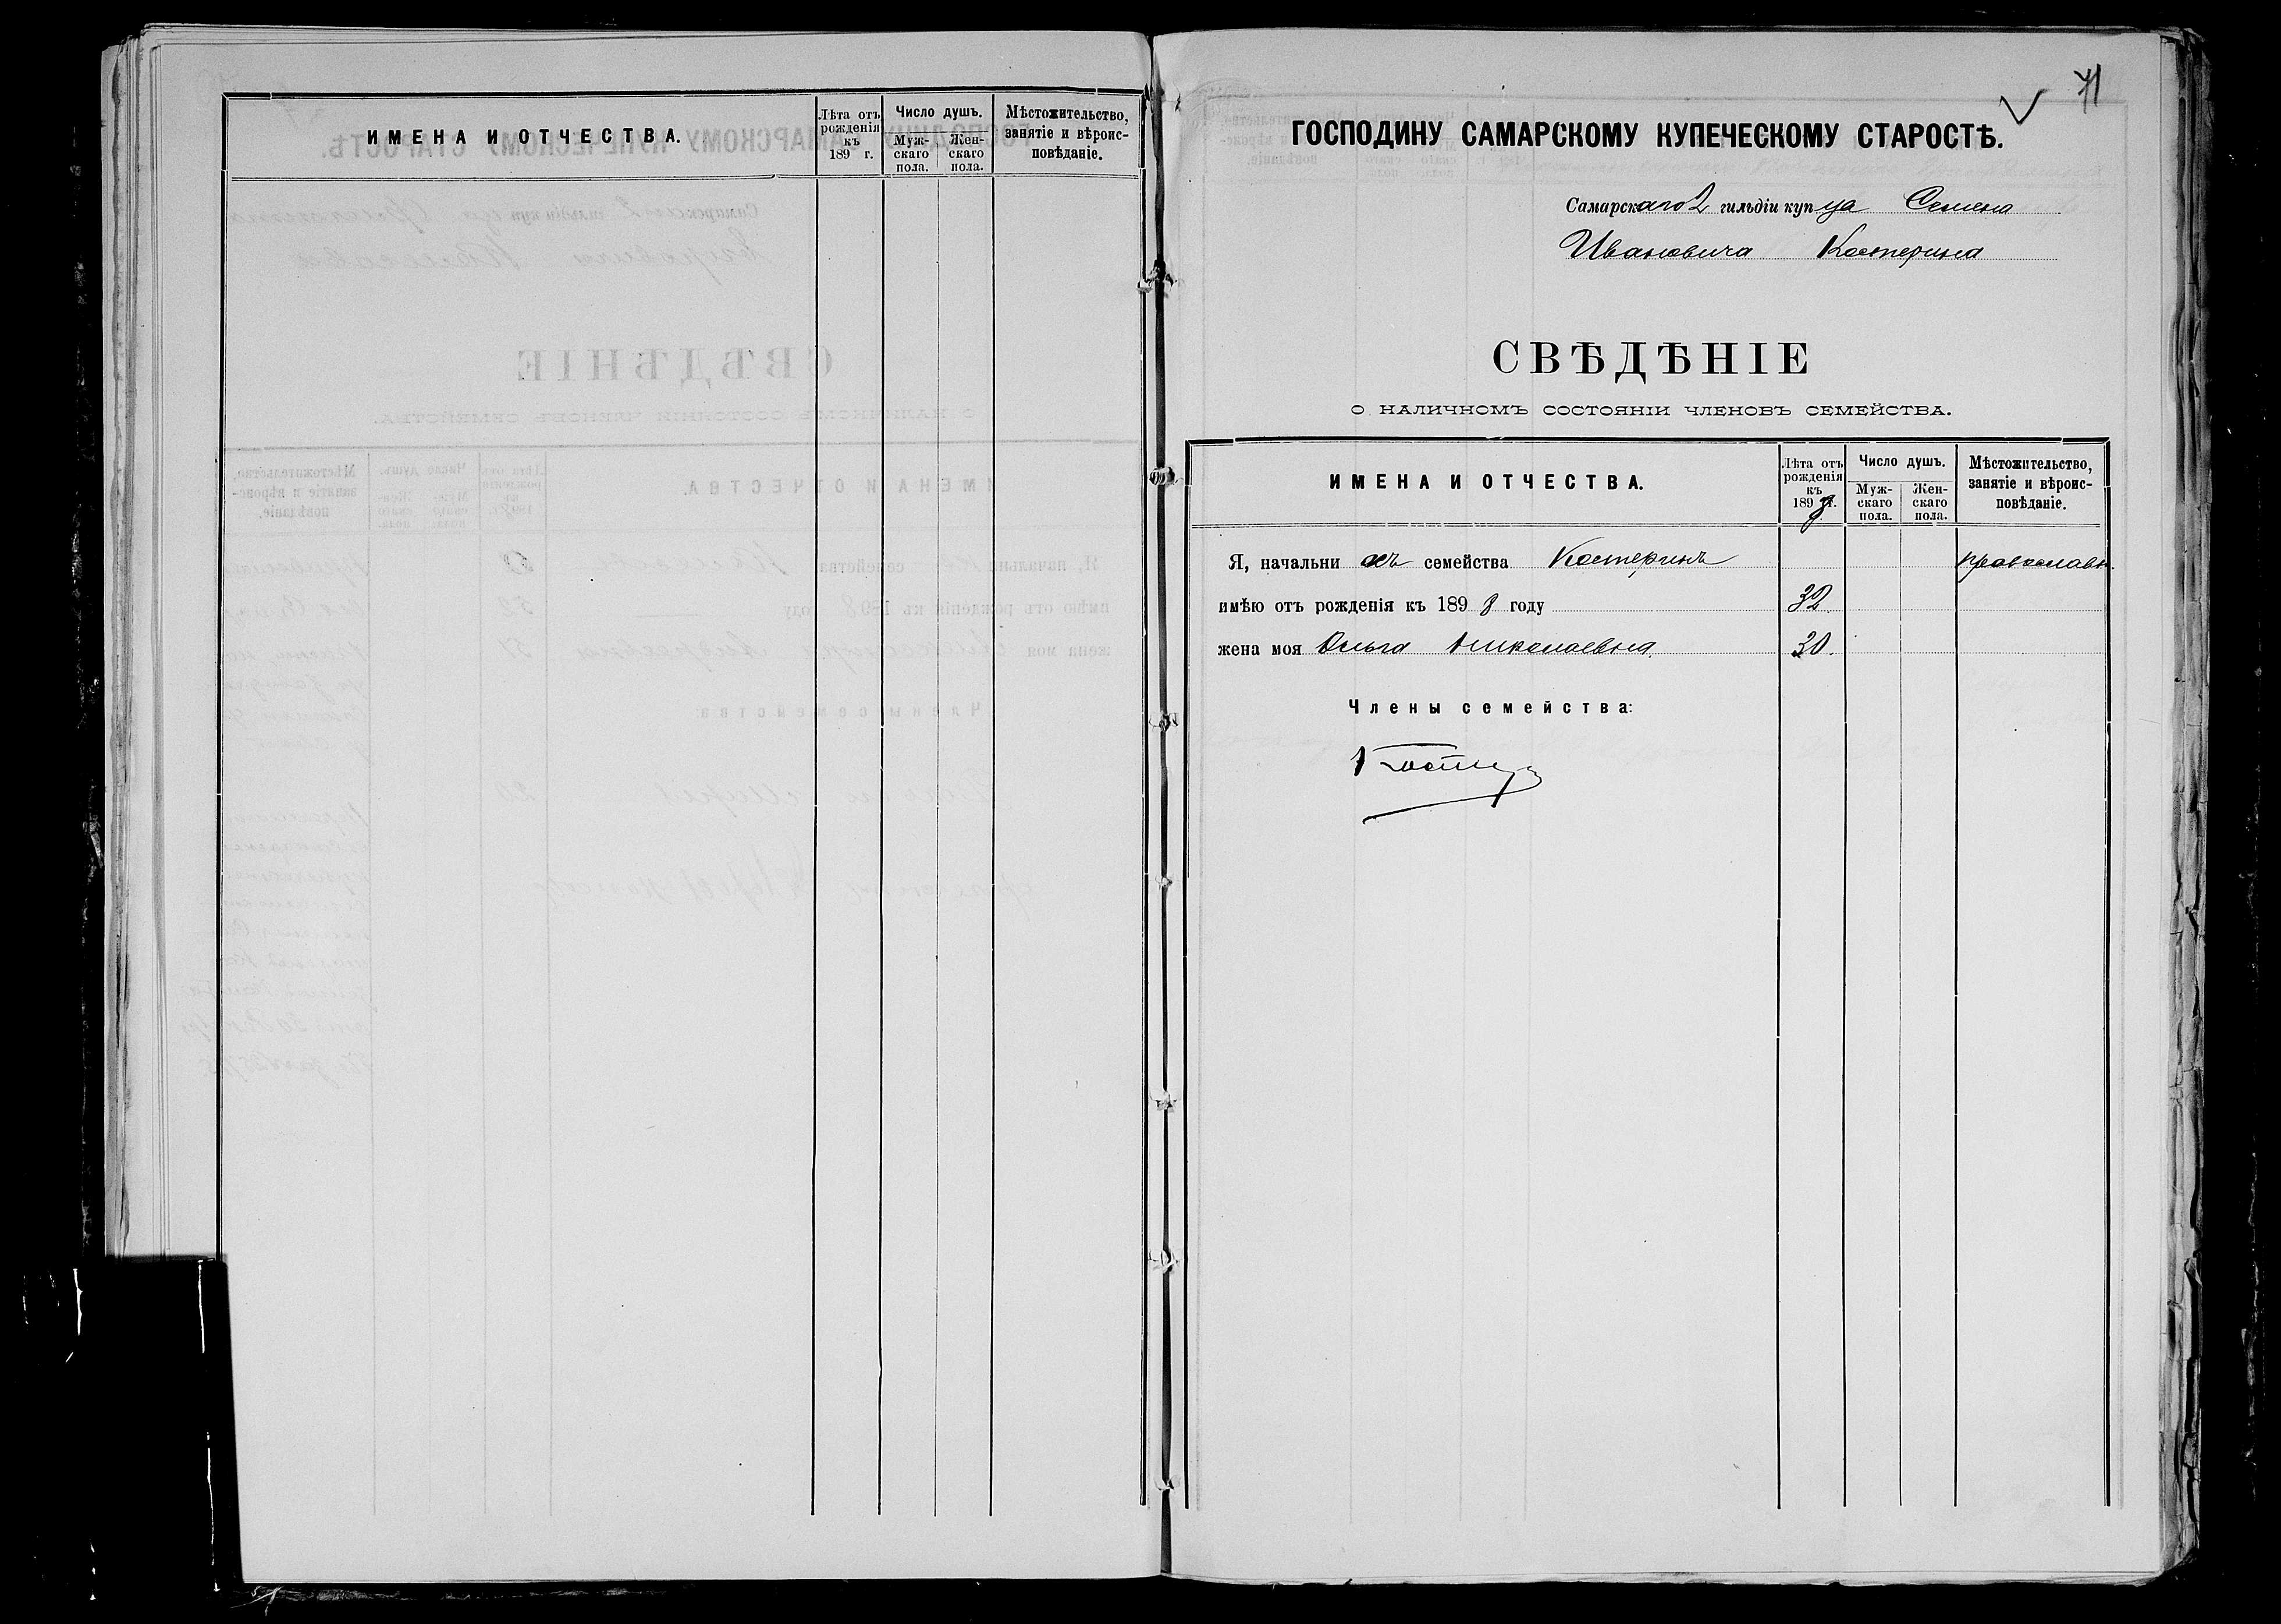 ИМЕНА И ОТЧЕСТВА.
Лѣта отъ рожденія къ 189 г.
Число душъ.
Муж-скаго пола.
Жен-скаго пола.
Мѣстожительство, занятіе и вѣроис-повѣданіе.
71
ГОСПОДИНУ САМАРСКОМУ КУПЕЧЕСКОМУ СТАРОСТѢ.
Самарскаго 2 гильдіи купца Семена
Ивановича Костерина
СВѢДѢНІЕ
О НАЛИЧНОМЪ СОСТОЯНІИ ЧЛЕНОВЪ СЕМЕЙСТВА.
ИМЕНА И ОТЧЕСТВА.
Лѣта отъ рожденія къ 1898 г.
Число душъ.
Муж-скаго пола.
Жен-скаго пола.
Мѣстожительство, занятіе и вѣроис-повѣданіе.
Я, начальникъ семейства Костеринъ православн.
имѣю отъ рожденія къ 1898 году 32.
жена моя Ольга Николаевна 30.
Члены семейства: